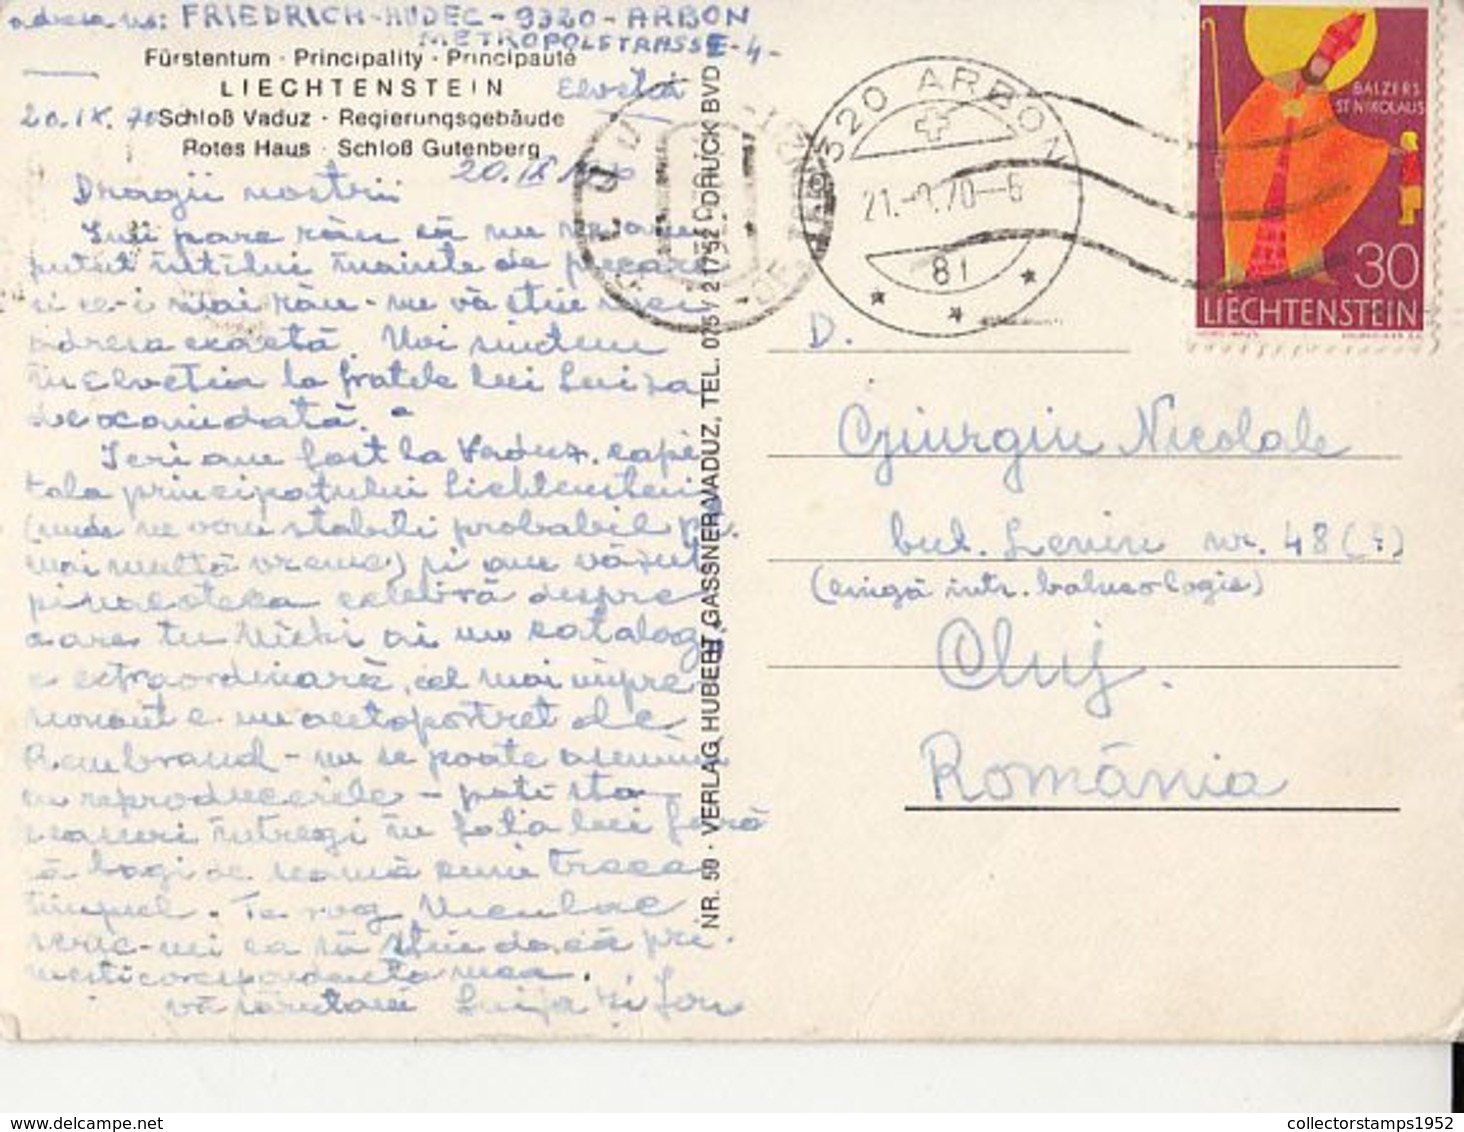 adresa ns: FRIEDRICH-HUDEC-9320-ARBON
METROPOLSTRASSE-4-
Elveția
Fürstentum · Principality · Principauté
LIECHTENSTEIN
20.IX.70
Schloß Vaduz · Regierungsgebäude
Rotes Haus · Schloß Gutenberg
20.IX
Dragii nostrii
Îmi pare rău că nu ne-am
putut întîlni înainte de plecare
și ce-i mai rău - nu vă știu nici
adresa exactă. Noi suntem
în Elveția la fratele lui Luiza
deocamdată.
Ieri am fost la Vaduz, capi
tala principatului Lichtenstein
(unde ne vom stabili probabil pt.
mai multă vreme) și am văzut
pinacoteca celebră despre
care tu Nicki ai un catalog
e extraordinară, cel mai impre
sionant e un autoportret de
Rembrand - nu se poate asemăna
cu reproducerile - poți sta
ceasuri întregi în fața lui fără
să bagi de seamă cum trece
timpul. Te rog Niculae
scrie-mi ca să știu dacă pri
mesti corespondența mea.
vă sărutăm Luiza și Ion
NR. 59 · VERLAG HUBERT GASSNER VADUZ, TEL. 075 / 2 17 52 - DRUCK BVD
9320 ARBON
21.-9.70-6
81
BALZERS
ST NIKOLAUS
30
LIECHTENSTEIN
D.
Giurgiu Nicolale
bul. Lenin nr. 48 (?)
(lîngă intr. balneologie)
Cluj.
România
collectorstamps1952